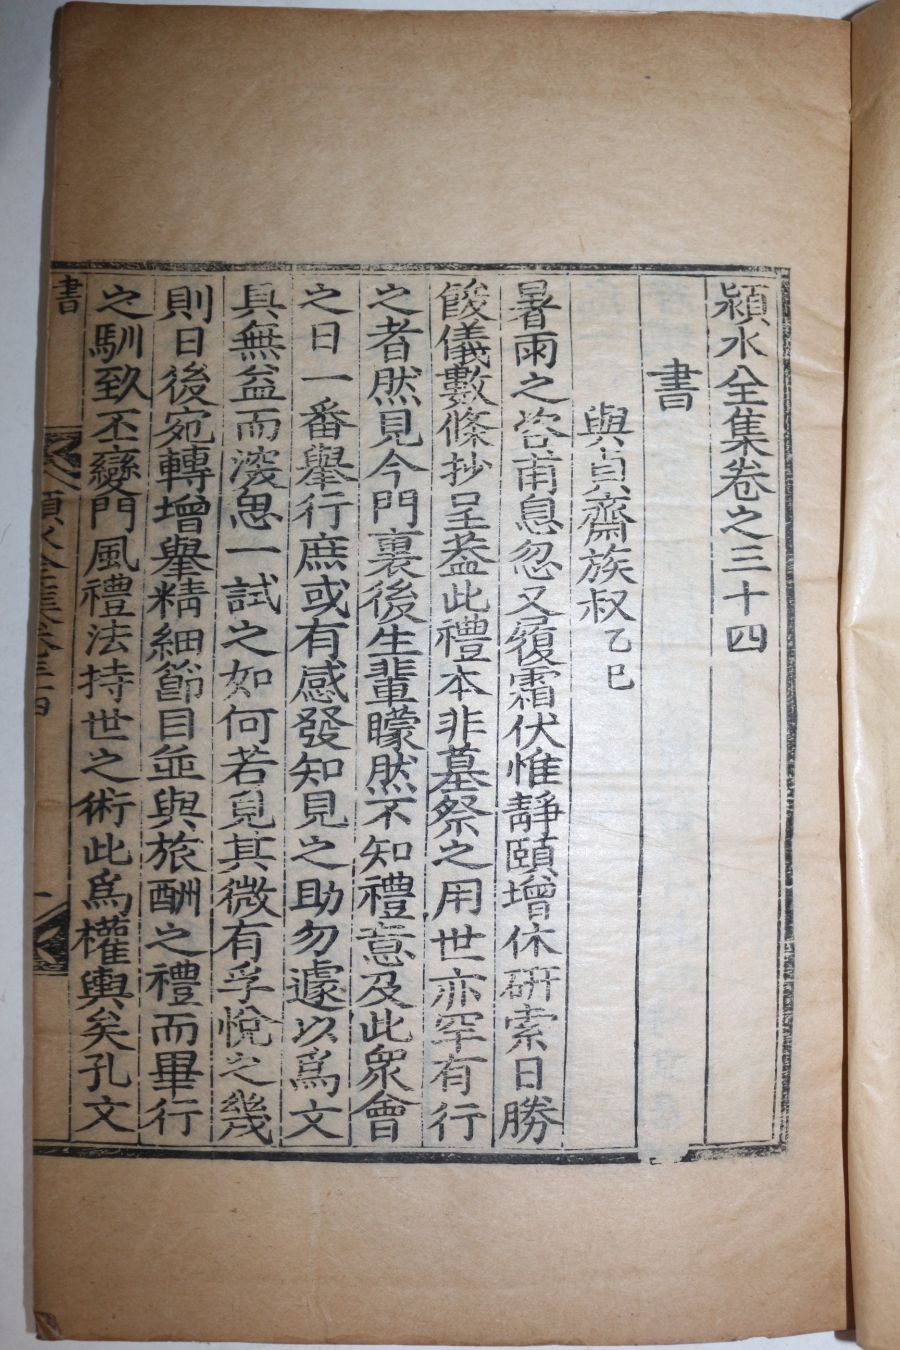 潁水全集卷之三十四
書
與貞齋族叔乙巳
暑雨之咨甫息忽又履霜伏惟靜頤增休硏索日勝
餕儀數條抄呈葢此禮本非墓祭之用世亦罕有行
之者然見今門裏後生輩矇然不知禮意及此衆會
之日一番擧行庶或有感發知見之助勿遽以爲文
具無益而漫思一試之如何若見其微有孚悅之幾
則日後宛轉增擧精細節目並與旅酬之禮而畢行
之馴致丕變門風禮法持世之術此爲權輿矣孔文
書
潁水全集卷三十四
一